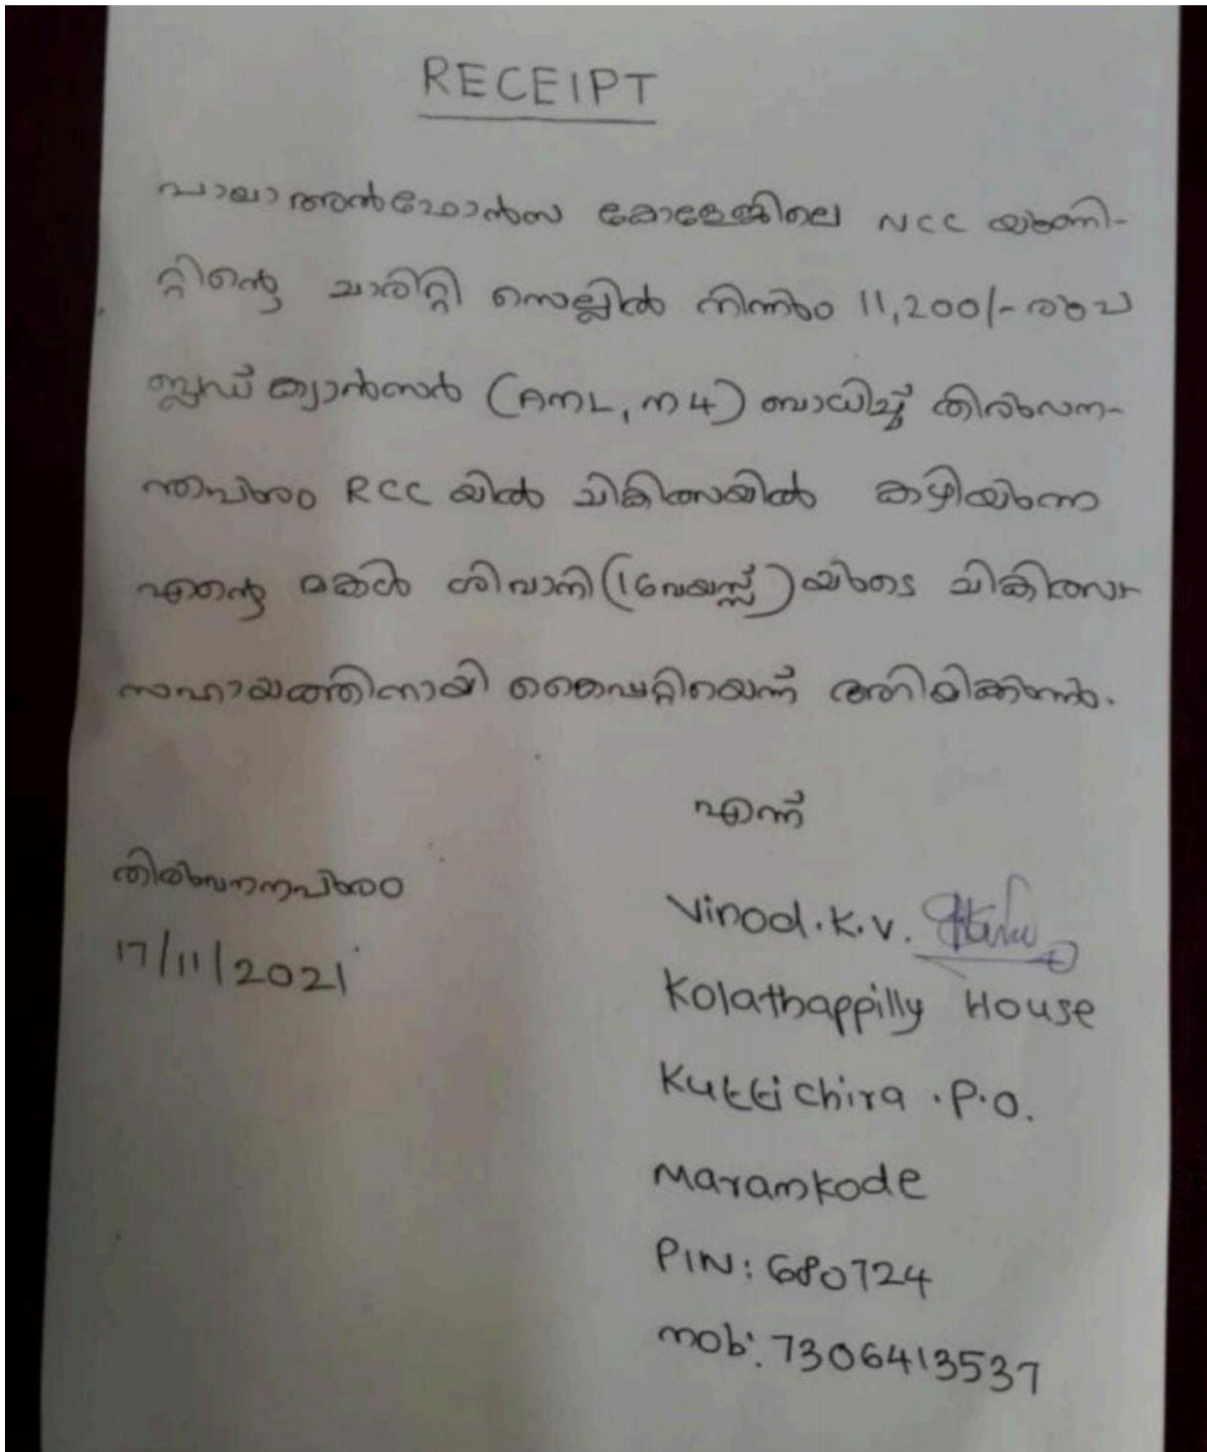 RECEIPT
പാലാ അൽഫോൻസ കോളേജിലെ NCC യൂണി-
റ്റിന്റെ ചാരിറ്റി സെല്ലിൽ നിന്നും 11,200/- രൂപ
ബ്ലഡ് ക്യാൻസർ (AML, M4) ബാധിച്ച് തിരുവന-
ന്തപുരം RCC യിൽ ചികിത്സയിൽ കഴിയുന്ന
എന്റെ മകൾ ശിവാനി (16 വയസ്സ്) യുടെ ചികിത്സാ
സഹായത്തിനായി കൈപ്പറ്റിയെന്ന് അറിയിക്കുന്നു.
എന്ന്
തിരുവനന്തപുരം
17/11/2021
Vinod.K.V.
Kolathappilly House
Kuttichira.P.O.
Maramkode
PIN: 680724
mob: 7306413537